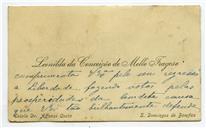 Leonilda da Conceição de Mello Fragoso
cumprimenta V. Ex.ª pelo seu regresso
á Liberdade, fazendo votos pelas
prosperidades da causa
que V. Ex.ª tão brilhantemente defende
Escola Dr. Affonso Costa
S. Domingos de Bemfica